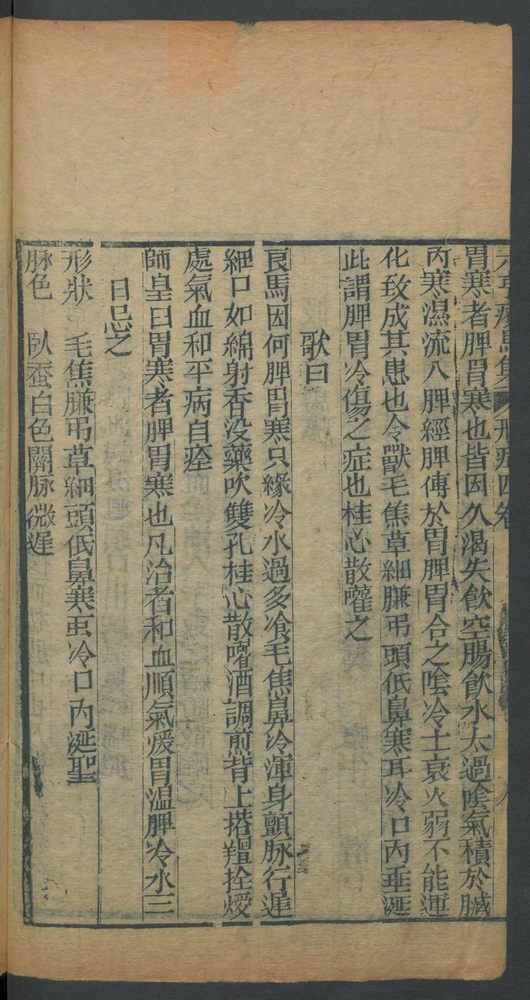 元亨療馬集 七十二形症四卷 八
胃寒者脾胃寒也皆因久渴失飲空腸飲水太過陰氣積於臟
內寒濕流入脾經脾傳於胃脾胃合之陰冷土衰火弱不能運
化致成其患也令獸毛焦草細膁吊頭低鼻寒耳冷口內垂涎
此謂脾胃冷傷之症也桂心散嚾之
歌曰
良馬因何脾胃寒只緣冷水過多飡毛焦鼻冷渾身顫脉行遲
細口如綿射香没藥吹雙孔桂心散嚾酒調煎背上搭氊拴煖
處氣血和平病自痊
師皇曰胃寒者脾胃寒也凡治者和血順氣煖胃温脾冷水三
日忌之
形狀 毛焦膁吊草細頭低鼻寒耳冷口內涎聖
脉色 臥蚕白色關脉微遲